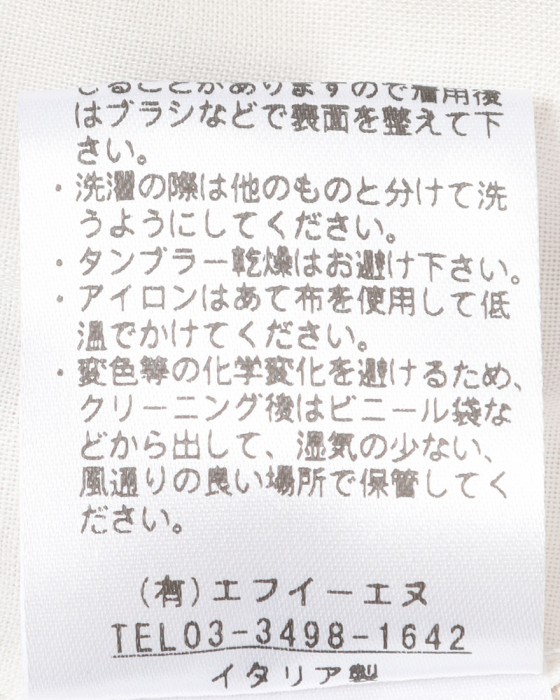 じることがありますので着用後
はブラシなどで表面を整えて下
さい。
・洗濯の際は他のものと分けて洗
うようにしてください。
・タンブラー乾燥はお避け下さい。
・アイロンはあて布を使用して低
温でかけてください。
・変色等の化学変化を避けるため、
クリーニング後はビニール袋な
どから出して、湿気の少ない、
風通りの良い場所で保管してく
ださい。
(有)エフイーエヌ
TEL03-3498-1642
イタリア製